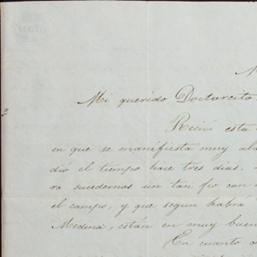 Mi querido Doctorcito
Recivi esta
en que se manifiesta muy
dió el tiempo hace tres dias,
rá sucedernos un tan
el campo, y que segun habra
Medina, están en muy buen
En cuanto a